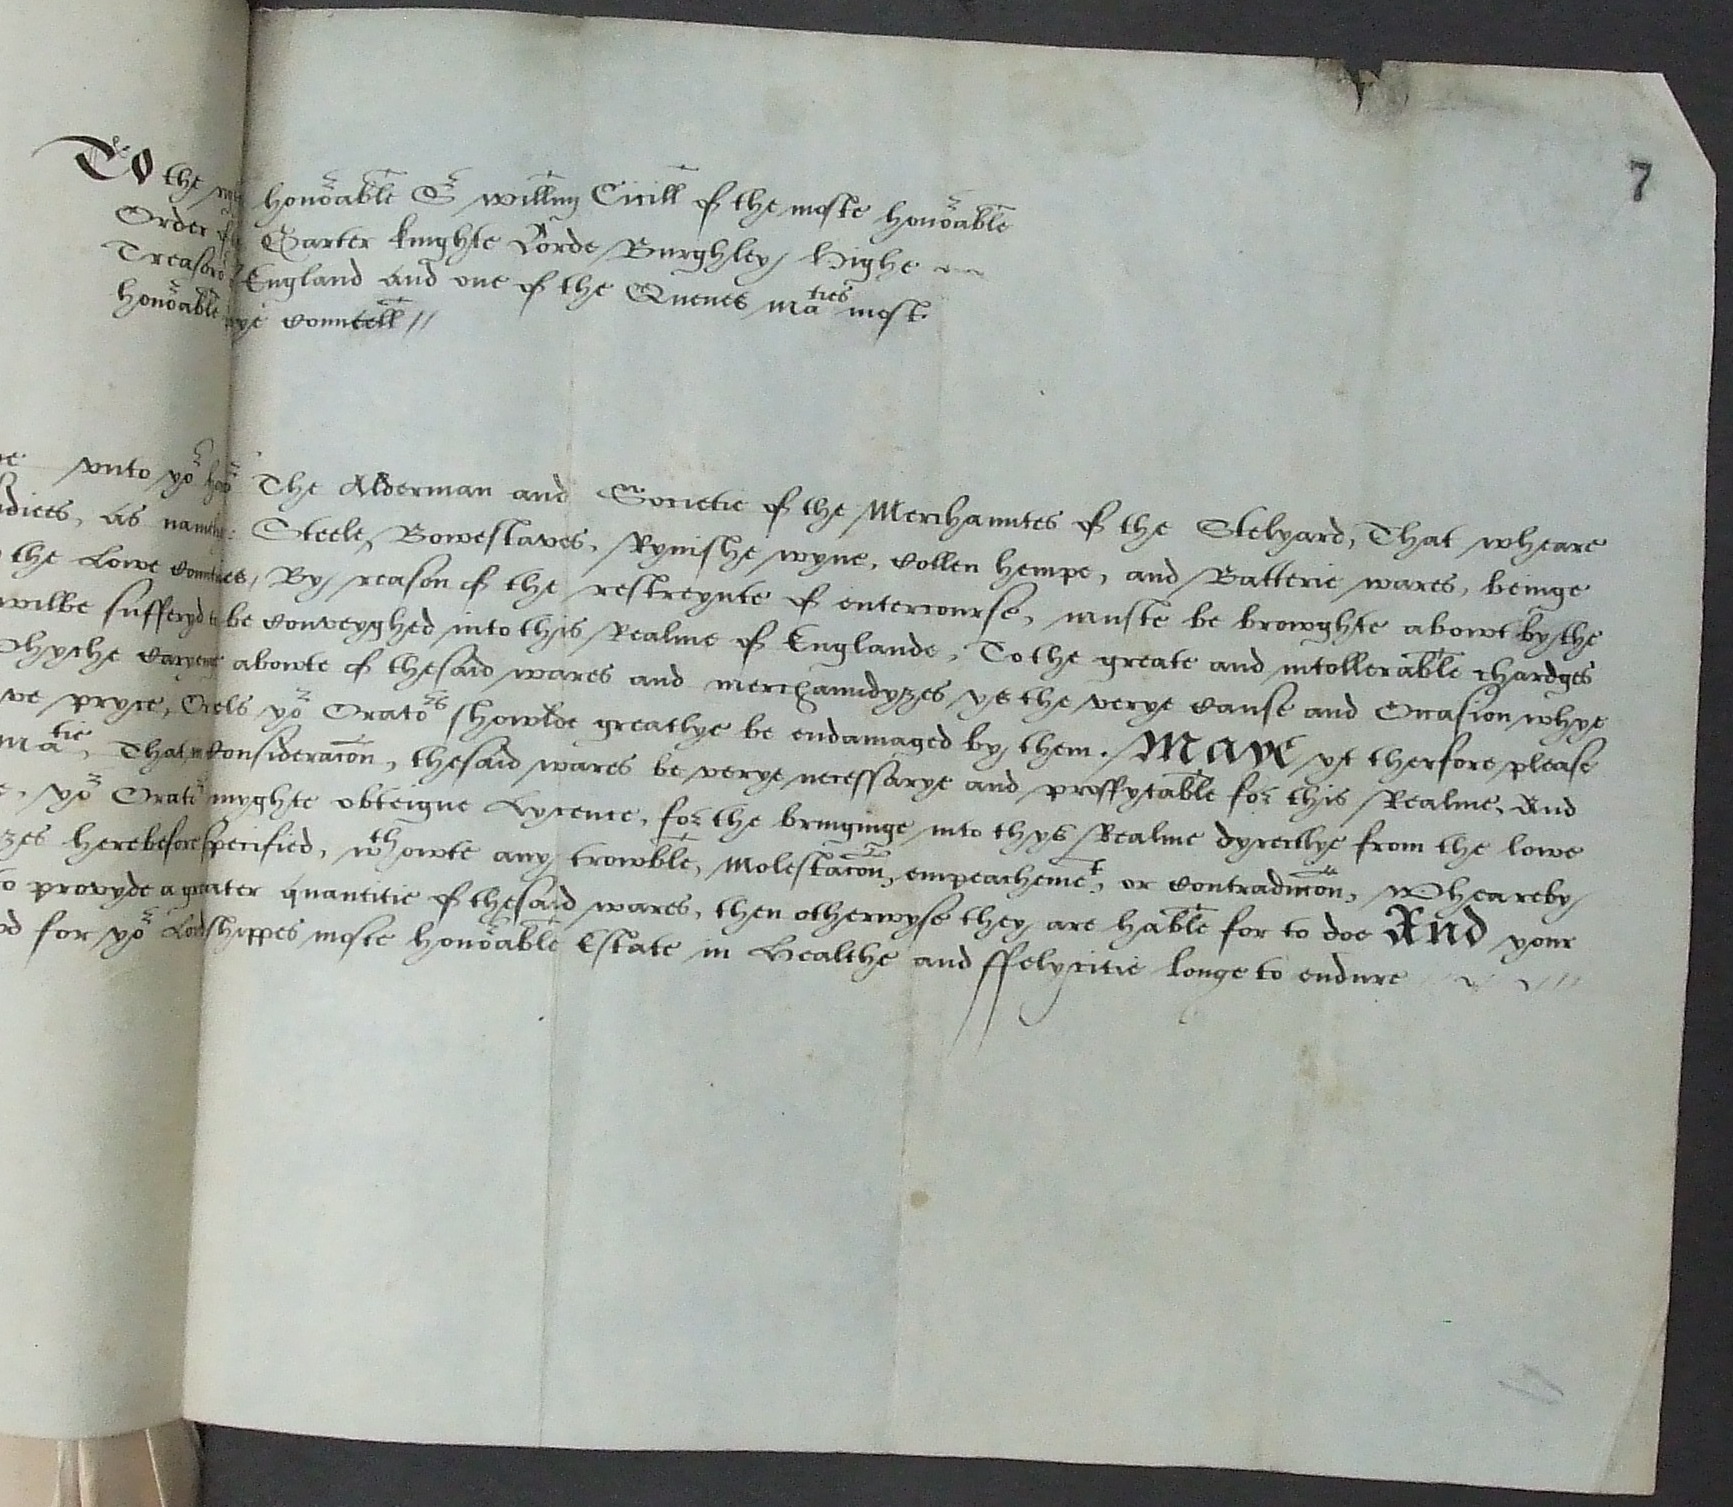 7
To the honoable Sr willm Cicill of the moste honoable
Order of Garter knighte Lorde Burghley highe
Treasoro England and one of the Quenes Maties most
honoable counsell //
vnto yor hor The Alderman and Societie of the Merchauntes of the Stelyard, That wheare
as namely: Steele, Bowestaves, Rynishe wyne, Collen hempe, and Batterie wares, beinge
the Lowe Countries, By reason of the restreynte of entercourse, muste be browghte abowt by the
wilbe sufferyd to be conveyghed into this Realme of Englande, To the greate and intollerable chardges
Whyche caryenge abowte of thesaid wares and merchaundyzes ys the verye cause and Occasion whye
pryce, Orels yor Orators showlde greatlye be endamaged by them. Maye yt therfore please
Matie, That in consideracon, thesaid wares be verye necessarye and proffytable for this Realme, And
yor Orators myghte obteigne Lycence, for the bringinge into thys Realme dyrectlye from the lowe
herebefore specified, wthowte any trowble, Molestacon, empeachemet, or contradiccon, Wheareby
provyde a greater quantitie of thesaid wares, then otherwyse they are hable for to doe And your
for yor Lordshippes moste honoable Estate in Healthe and ffelycitie longe to endure